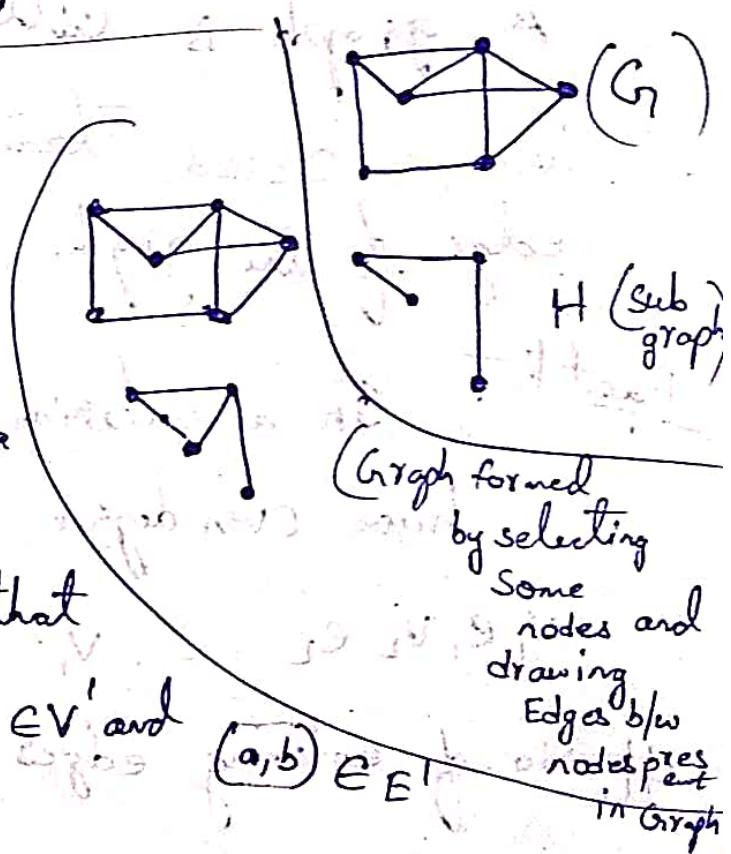 (G)
H (sub
graph)
(Graph formed
by selecting
Some
nodes and
drawing
Edges b/w
nodes present
in Graph
that
∈V' and (a,b) ∈ E'